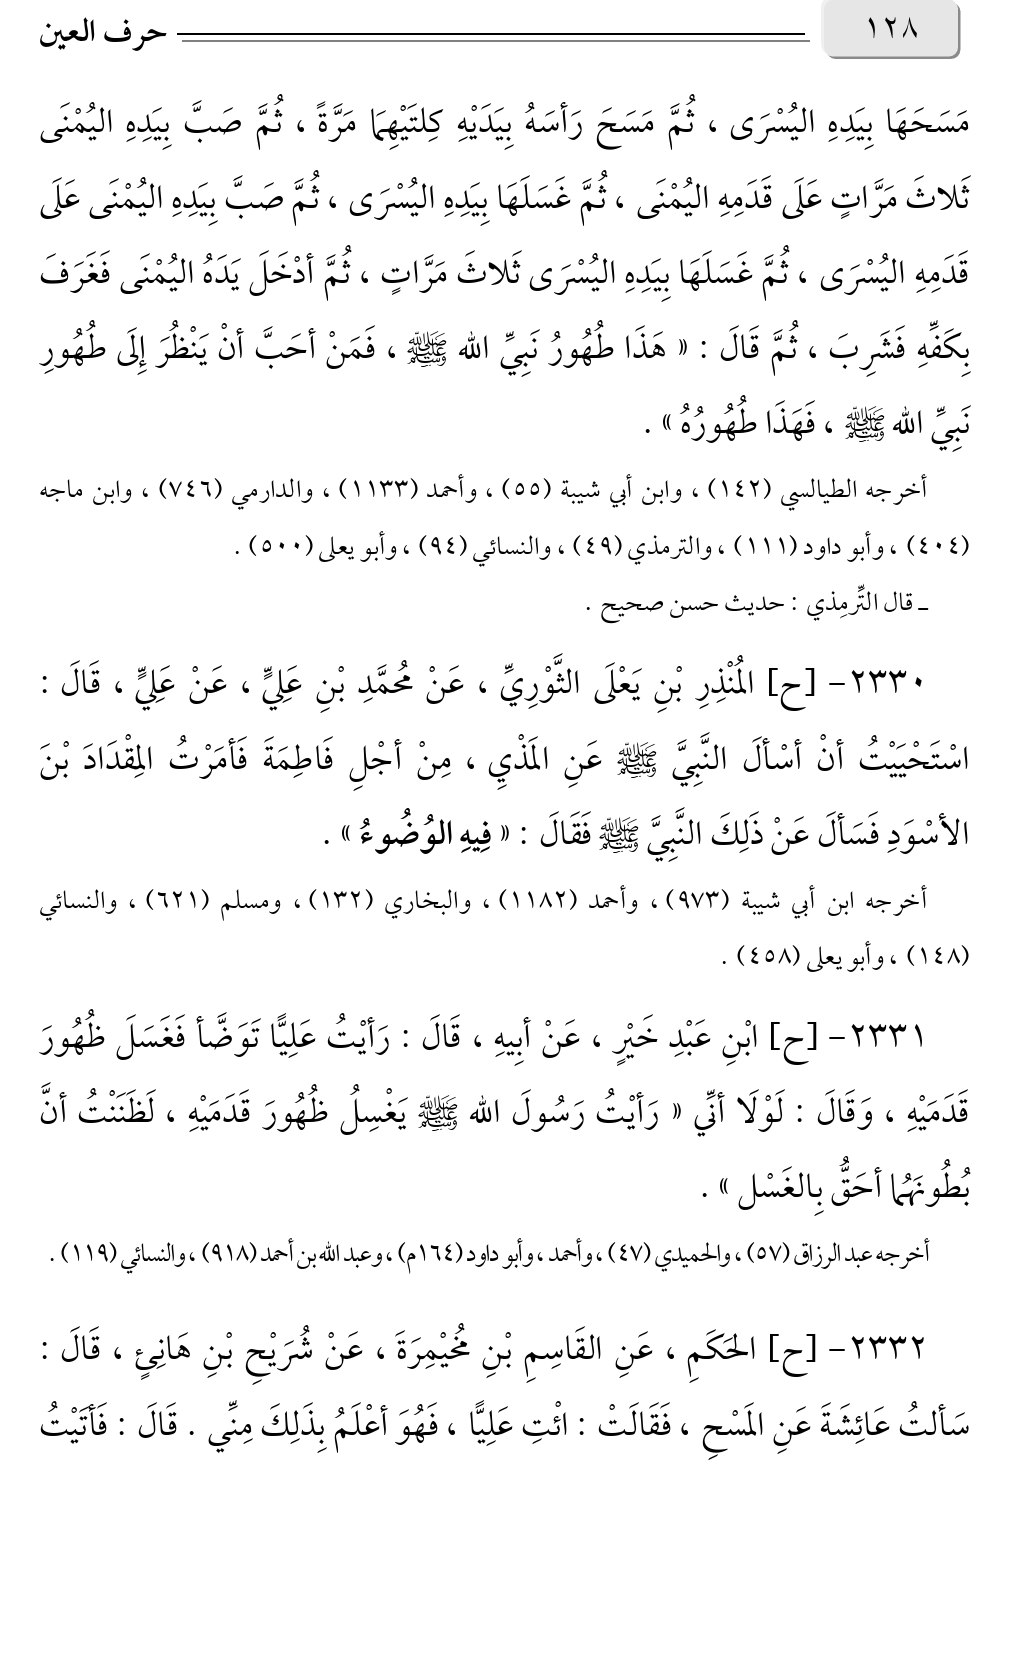 ١٢٨ حرف العين
مَسَحَهَا بِيَدِهِ اليُسْرَى ، ثُمَّ مَسَحَ رَأسَهُ بِيَدَيْهِ كِلتَيْهِمَا مَرَّةً ، ثُمَّ صَبَّ بِيَدِهِ اليُمْنَى
ثَلاثَ مَرَّاتٍ عَلَى قَدَمِهِ اليُمْنَى ، ثُمَّ غَسَلَهَا بِيَدِهِ اليُسْرَى ، ثُمَّ صَبَّ بِيَدِهِ اليُمْنَى عَلَى
قَدَمِهِ اليُسْرَى ، ثُمَّ غَسَلَهَا بِيَدِهِ اليُسْرَى ثَلاثَ مَرَّاتٍ ، ثُمَّ أدْخَلَ يَدَهُ اليُمْنَى فَغَرَفَ
بِكَفِّهِ فَشَرِبَ ، ثُمَّ قَالَ : « هَذَا طُهُورُ نَبِيِّ الله ﷺ ، فَمَنْ أحَبَّ أنْ يَنْظُرَ إِلَى طُهُورِ
نَبِيِّ الله ﷺ ، فَهَذَا طُهُورُهُ » .
أخرجه الطيالسي (١٤٢) ، وابن أبي شيبة (٥٥) ، وأحمد (١١٣٣) ، والدارمي (٧٤٦) ، وابن ماجه
(٤٠٤) ، وأبو داود (١١١) ، والترمذي (٤٩) ، والنسائي (٩٤) ، وأبو يعلى (٥٠٠) .
ـ قال التِّرمِذي : حديث حسن صحيح .
٢٣٣٠- [ح] المُنْذِرِ بْنِ يَعْلَى الثَّوْرِيِّ ، عَنْ مُحَمَّدِ بْنِ عَلِيٍّ ، عَنْ عَلِيٍّ ، قَالَ :
اسْتَحْيَيْتُ أنْ أسْألَ النَّبِيَّ ﷺ عَنِ المَذْيِ ، مِنْ أجْلِ فَاطِمَةَ فَأمَرْتُ المِقْدَادَ بْنَ
الأسْوَدِ فَسَألَ عَنْ ذَلِكَ النَّبِيَّ ﷺ فَقَالَ : « فِيهِ الوُضُوءُ » .
أخرجه ابن أبي شيبة (٩٧٣) ، وأحمد (١١٨٢) ، والبخاري (١٣٢) ، ومسلم (٦٢١) ، والنسائي
(١٤٨) ، وأبو يعلى (٤٥٨) .
٢٣٣١- [ح] ابْنِ عَبْدِ خَيْرٍ ، عَنْ أبِيهِ ، قَالَ : رَأيْتُ عَلِيًّا تَوَضَّأ فَغَسَلَ ظُهُورَ
قَدَمَيْهِ ، وَقَالَ : لَوْلَا أنِّي « رَأيْتُ رَسُولَ الله ﷺ يَغْسِلُ ظُهُورَ قَدَمَيْهِ ، لَظَنَنْتُ أنَّ
بُطُونَهُمَا أحَقُّ بِالغَسْل » .
أخرجه عبد الرزاق (٥٧) ، والحميدي (٤٧) ، وأحمد ، وأبو داود (١٦٤م) ، وعبد الله بن أحمد (٩١٨) ، والنسائي (١١٩) .
٢٣٣٢- [ح] الحَكَمِ ، عَنِ القَاسِمِ بْنِ مُخَيْمِرَةَ ، عَنْ شُرَيْحِ بْنِ هَانِئٍ ، قَالَ :
سَألتُ عَائِشَةَ عَنِ المَسْحِ ، فَقَالَتْ : ائْتِ عَلِيًّا ، فَهُوَ أعْلَمُ بِذَلِكَ مِنِّي . قَالَ : فَأتَيْتُ